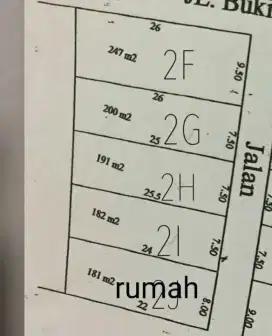 JL. Buki
26
247 m2
2F
9.50
26
200 m2
2G
7.50
25
Jalan
191 m2
2H
7.50
25.5
182 m2
2I
7.50
24
181 m2
rumah
8.00
22
7.50
9.00